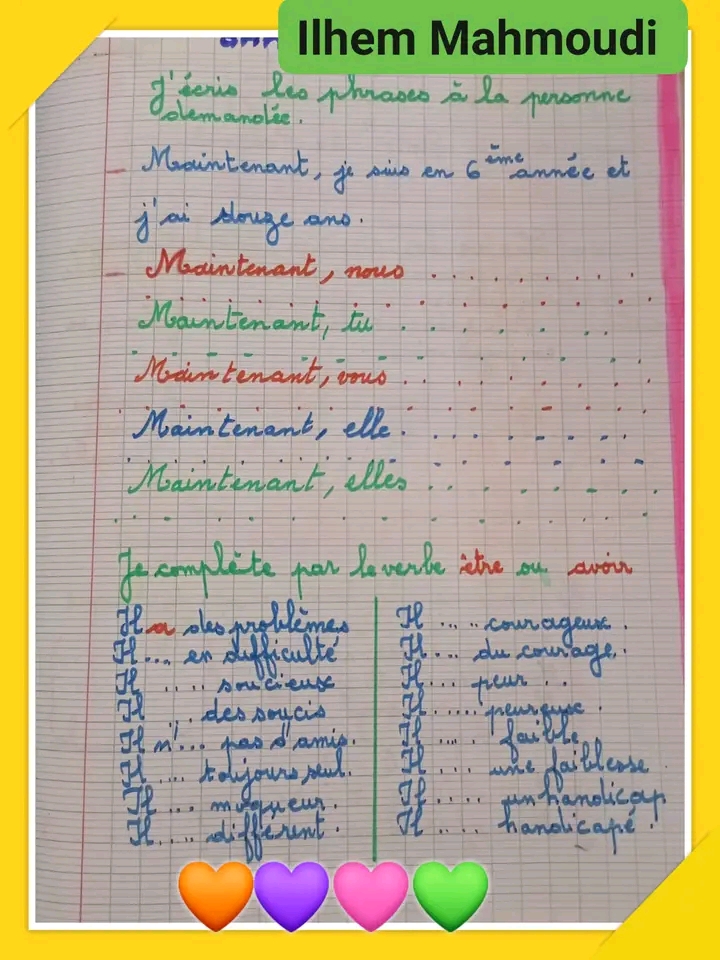 Ilhem Mahmoudi
J'écris les phrases à la personne
demandée.
Maintenant, je suis en 6ème année et
j'ai douze ans.
Maintenant, nous . . . . . . . . .
Maintenant, tu . . . . . .
Maintenant, vous . . . . . . . .
Maintenant, elle . . . . . . . .
Maintenant, elles . . . . . . .
Je complète par le verbe être ou avoir
Il a des problèmes
Il ... en difficulté
Il .... soucieux
Il ... des soucis
Il n'... pas d'amis.
Il .... toujours seul.
Il ... moqueur.
Il .... différent.
Il ..... courageux.
Il ... du courage.
Il ... peur . .
Il ..... peureux.
Il .... faible.
Il ... une faiblesse
Il .... un handicap
Il .... handicapé.